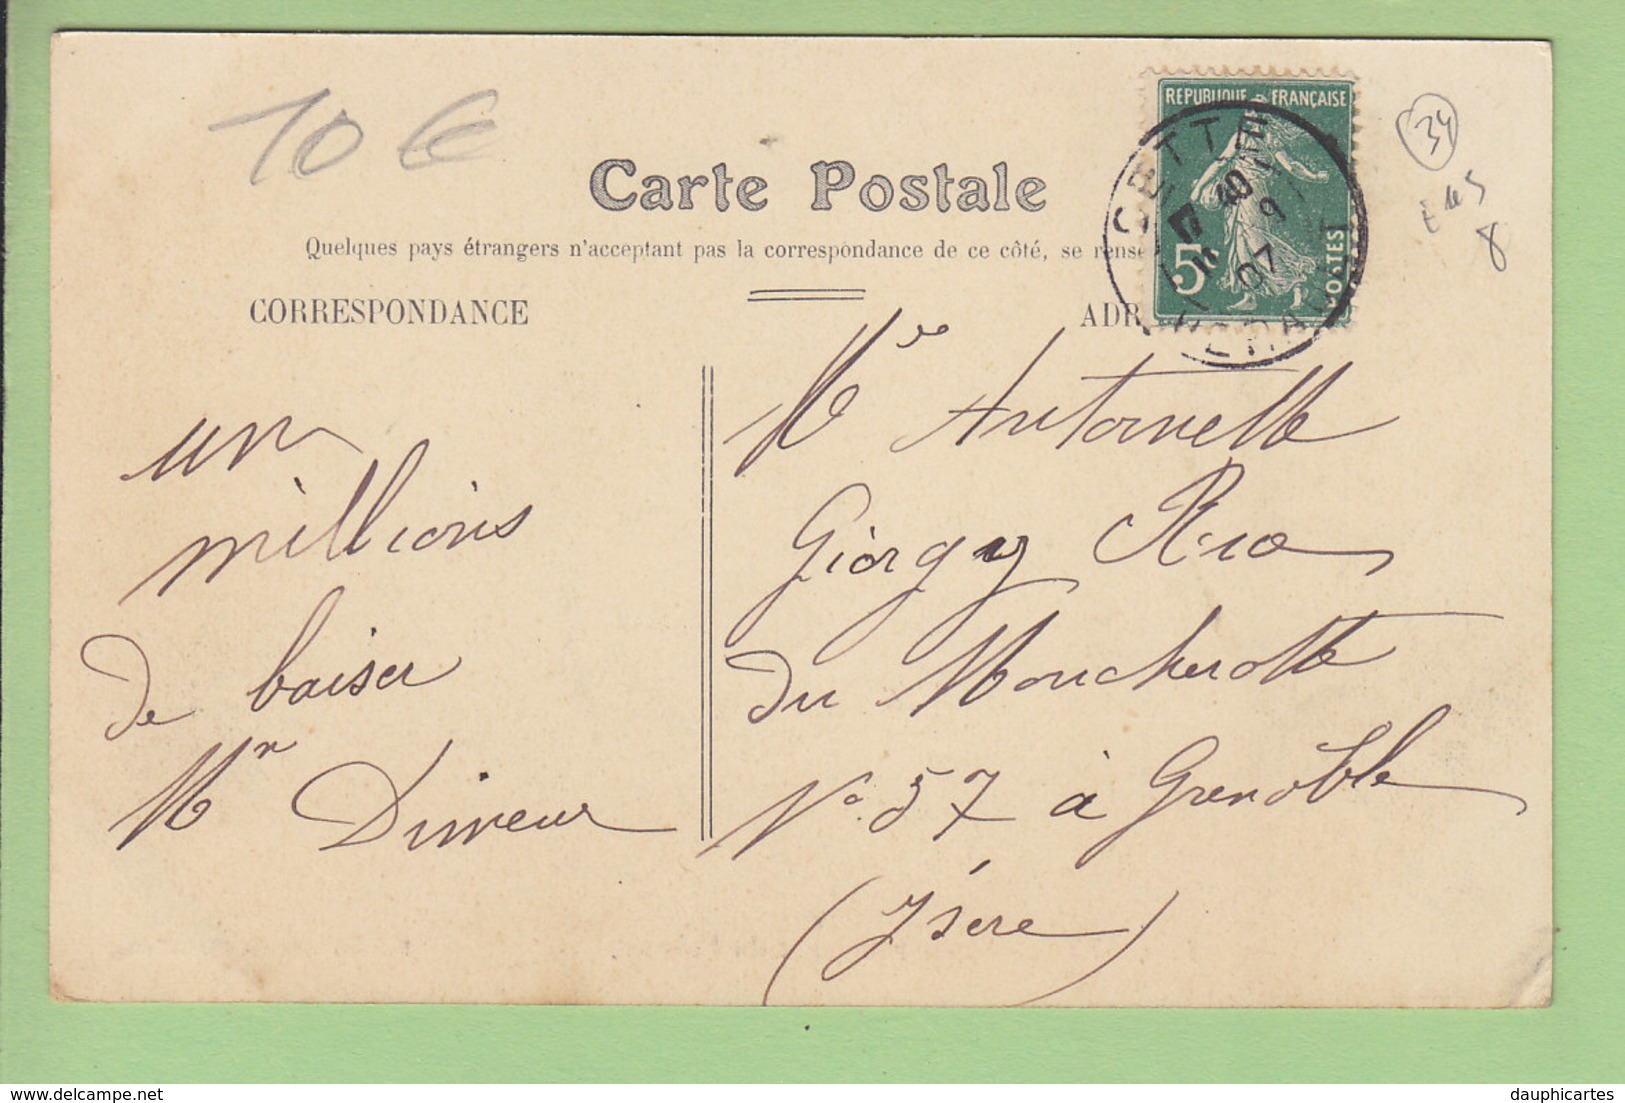 10 €
Carte Postale
Quelques pays étrangers n'acceptant pas la correspondance de ce côté, se rense
CORRESPONDANCE
ADR
REPUBLIQUE FRANÇAISE
5c
POSTES
CETTE
40
9
07
HERAULT
34
8
un
millions
de baiser
Mr Dimeur
Mle Antoinette
Giorgy Rue
du Moucherotte
No 57 à Grenoble
(Isère)
dauphicartes